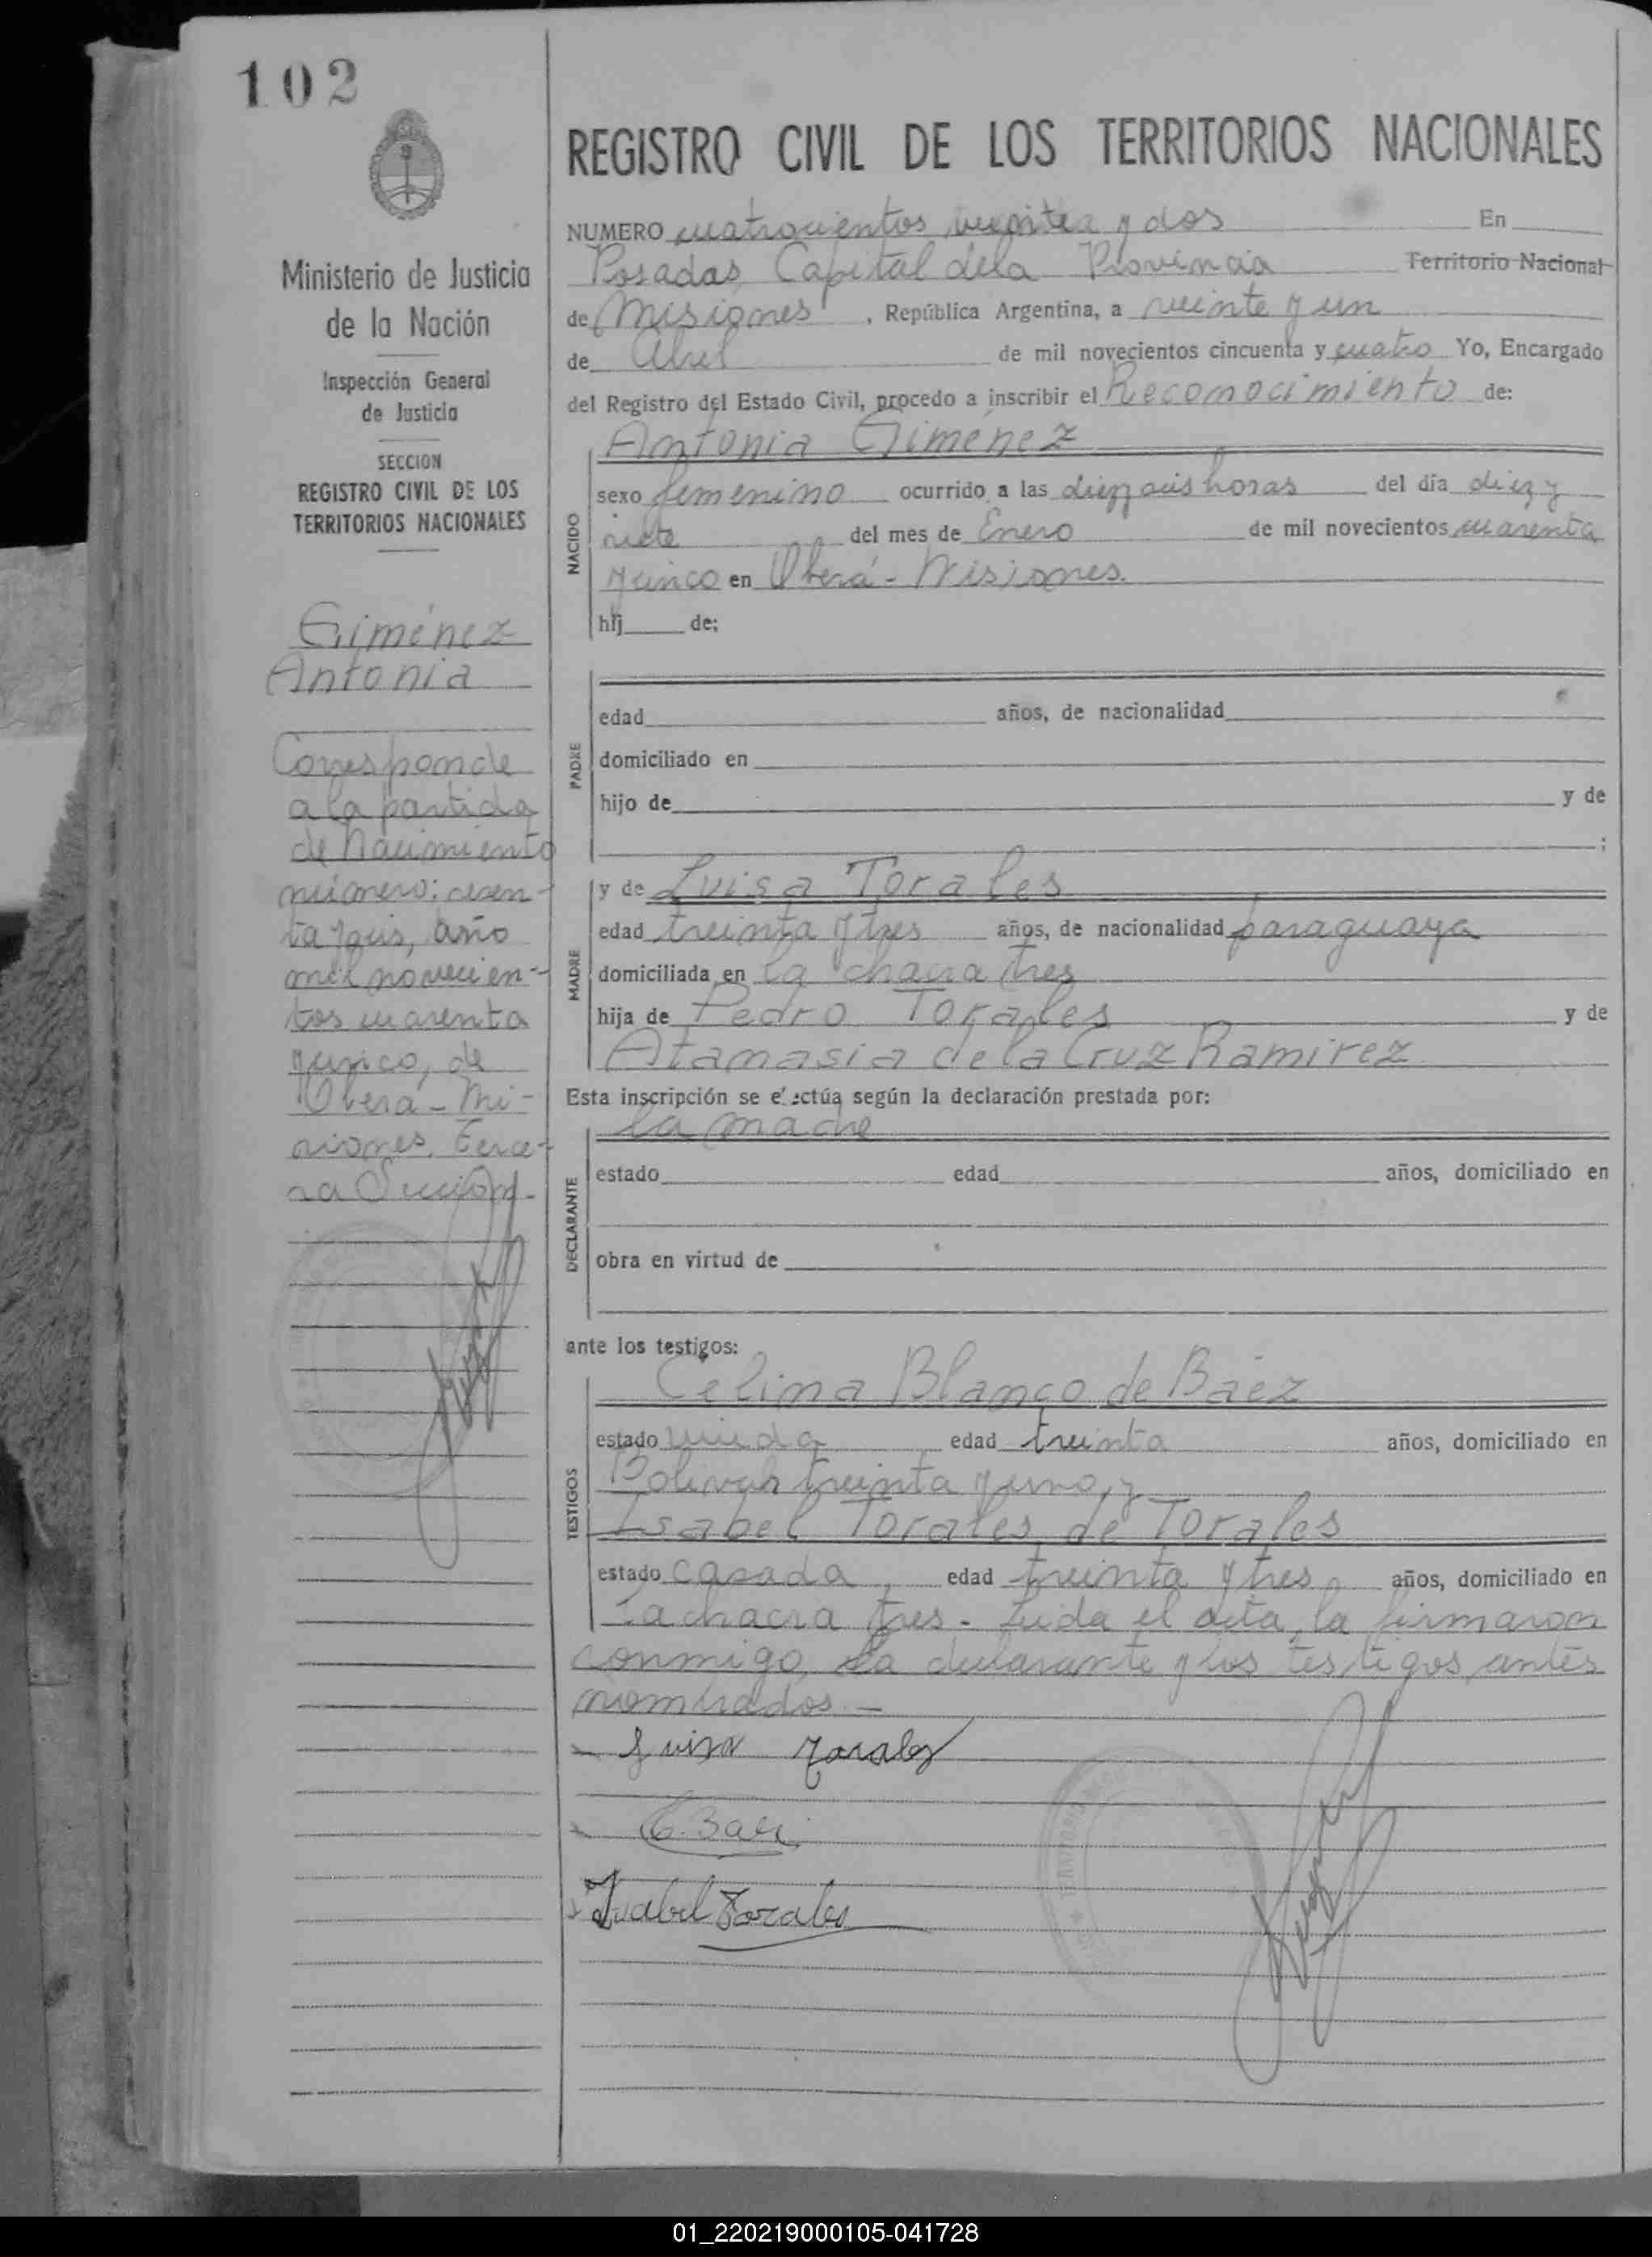 102
Ministerio de Justicia
de la Nación
Inspección General
de Justicia
SECCION
REGISTRO CIVIL DE LOS
TERRITORIOS NACIONALES
Giménez
Antonia
Corresponde
a la partida
de Nacimiento
número: sesen-
ta y seis, año
mil novecien-
tos cuarenta
y cinco, de
Oberá - Mi-
siones. Terce-
ra Sección.
REGISTRO CIVIL DE LOS TERRITORIOS NACIONALES
NUMERO cuatrocientos y dos En
Posadas, Capital de la Provincia Territorio Nacional
de Misiones, República Argentina, a veinte y un
de Abril de mil novecientos cincuenta y cuatro Yo, Encargado
del Registro del Estado Civil, procedo a inscribir el Reconocimiento de:
Antonia Giménez
NACIDO
sexo femenino ocurrido a las diez y seis horas del día diez y
siete del mes de Enero de mil novecientos cuarenta
y cinco en Oberá - Misiones.
hij de:
PADRE
edad años, de nacionalidad
domiciliado en
hijo de y de
;
MADRE
y de Luisa Torales
edad treinta y tres años, de nacionalidad paraguaya
domiciliada en la chacra tres
hija de Pedro Torales y de
Atamasia de la Cruz Ramirez
Esta inscripción se efectúa según la declaración prestada por:
la madre
DECLARANTE
estado edad años, domiciliado en
obra en virtud de
ante los testigos:
Celima Blanco de Báez
TESTIGOS
estado viuda edad treinta años, domiciliado en
Bolivar treinta y uno, y
Isabel Torales de Torales
estado casada, edad treinta y tres años, domiciliado en
la chacra tres - Leida el acta, la firmaron
conmigo, la declarante y los testigos antes
nombrados. -
Luisa Torales
Isabel Torales
01_220219000105-041728